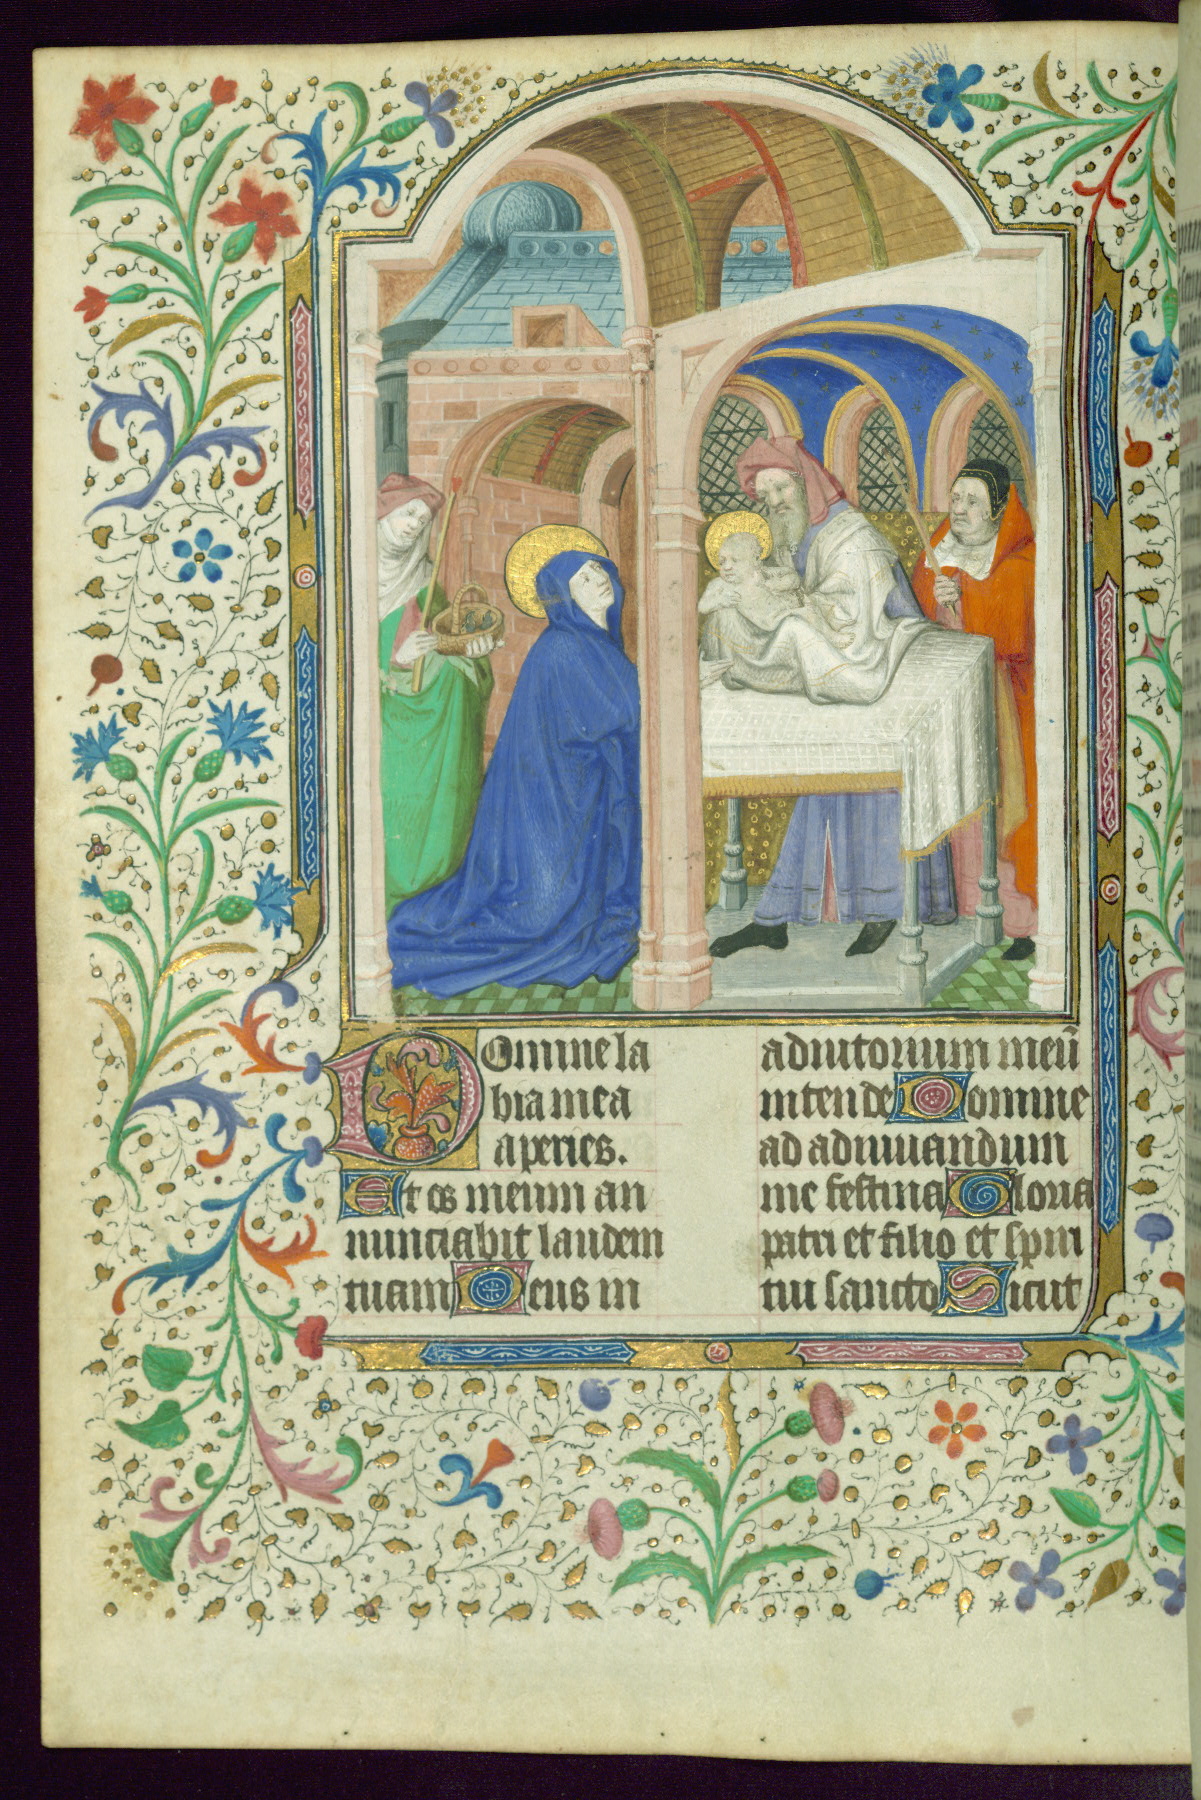 Domine la
bia mea
aperies.
Et os meum an
nunciabit laudem
tuam Deus in
adiutorium meū
intende Domine
ad adiuuandum
me festina Gloria
patri et filio et spiri
tui sancto Sicut